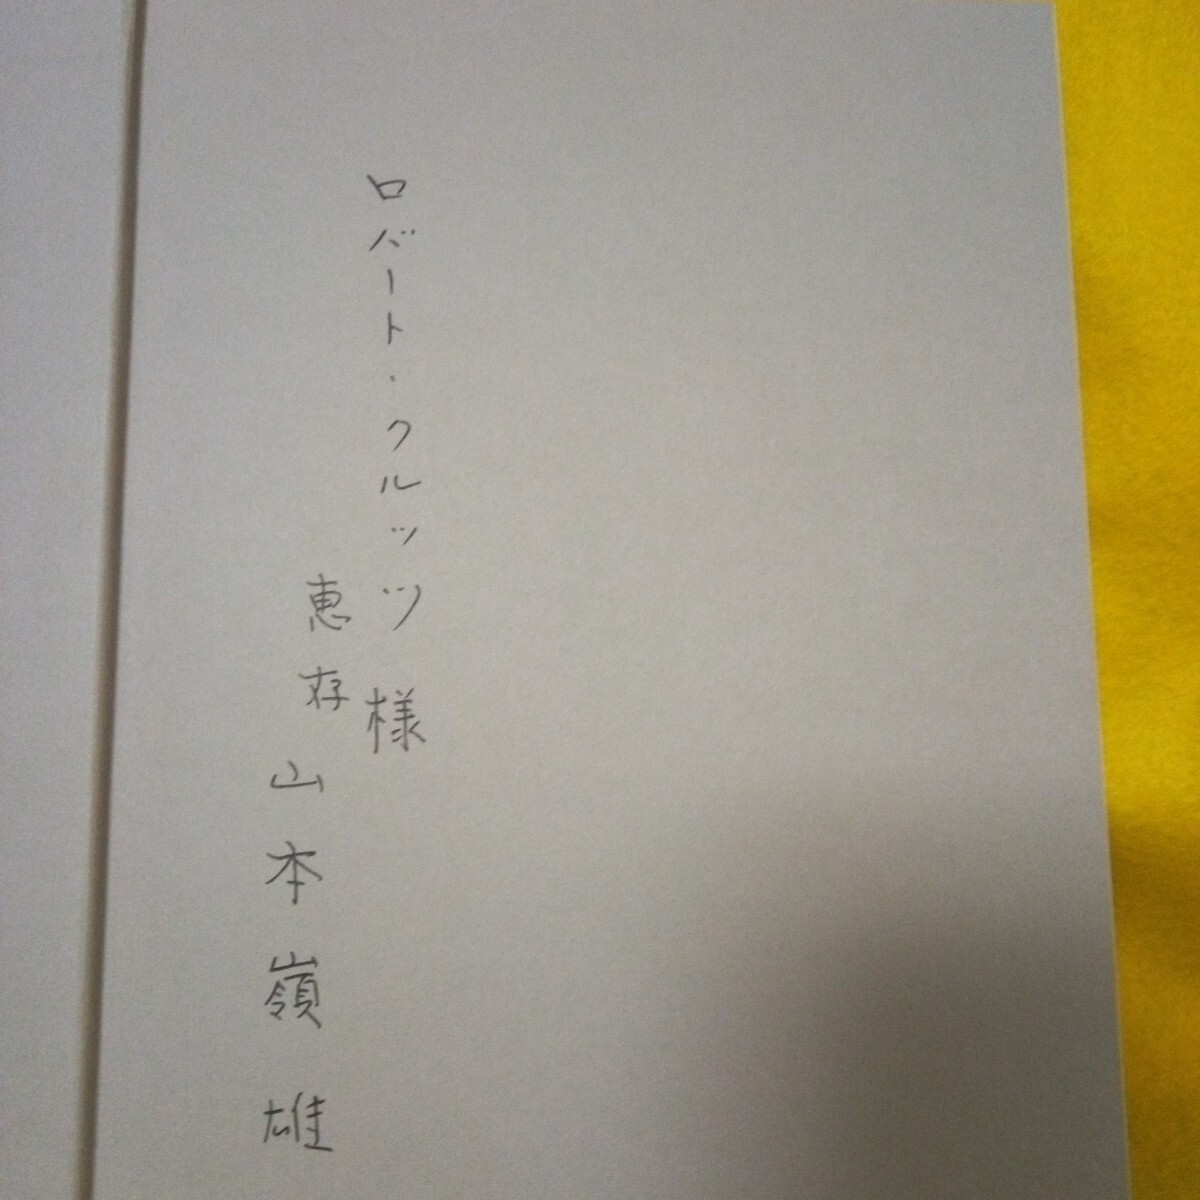 ロバート・クルッツ様
恵存
山本嶺雄